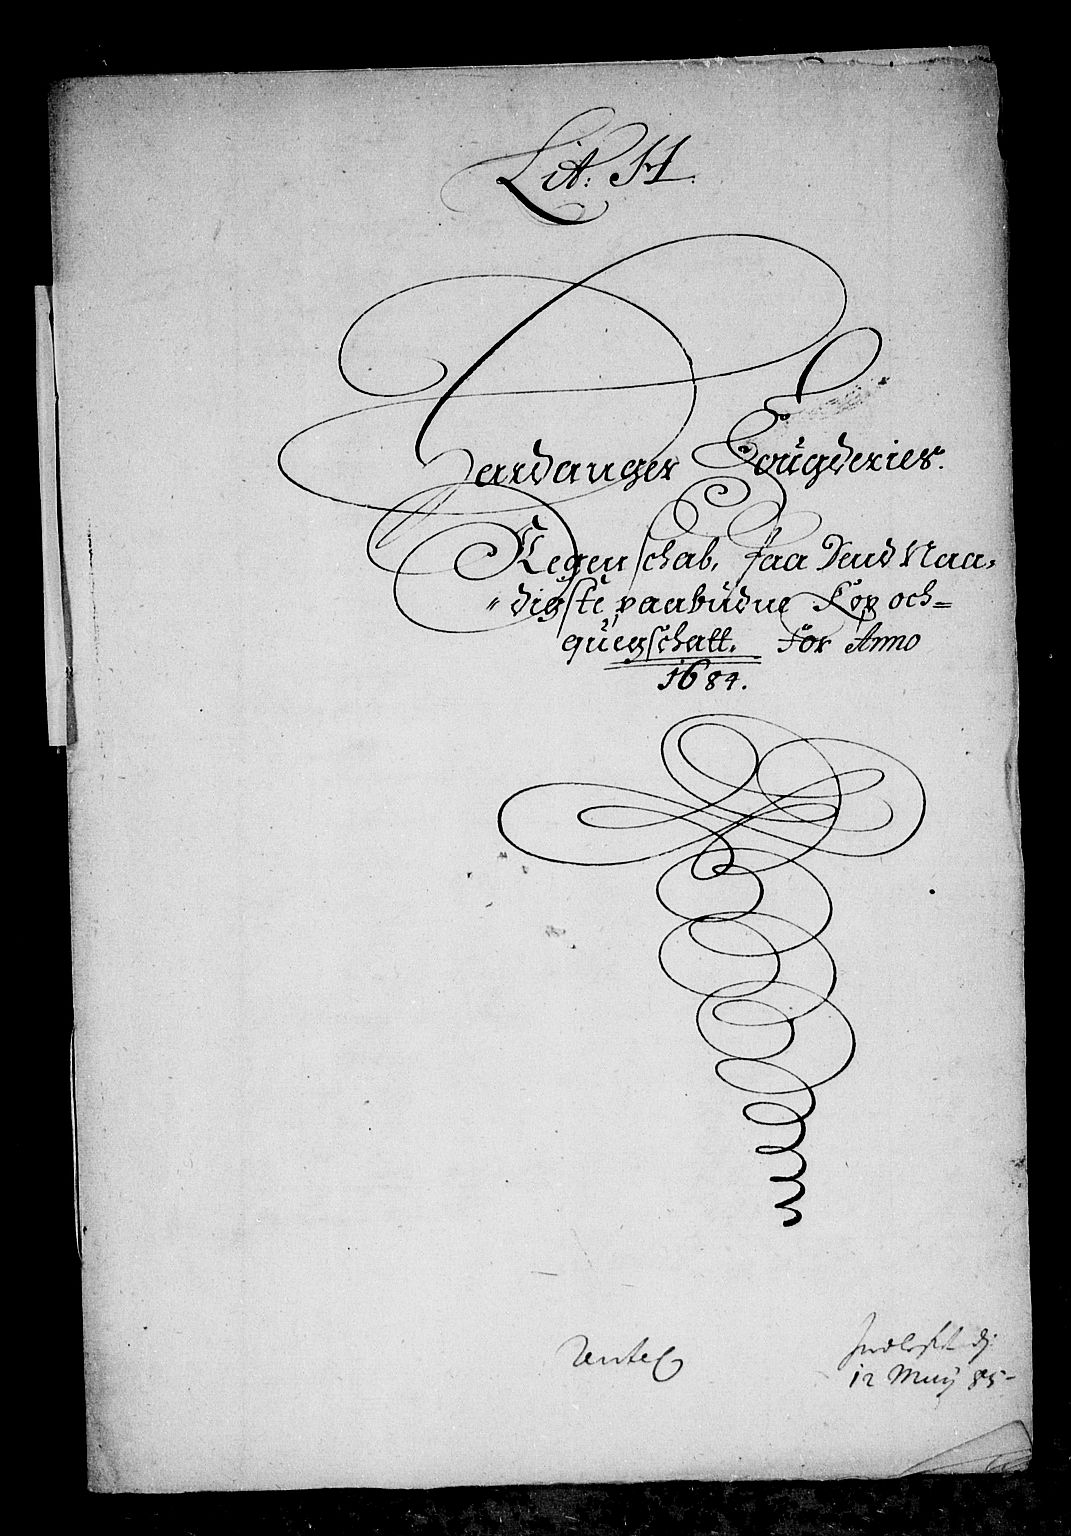 Lit: H.
Hardanger Fougderies.
Regenschab, Paa Dend Naa,
" digste paabudne Kop och=
quegschatt. For Anno
1684.
Indlefht dj
12 Maij 85-